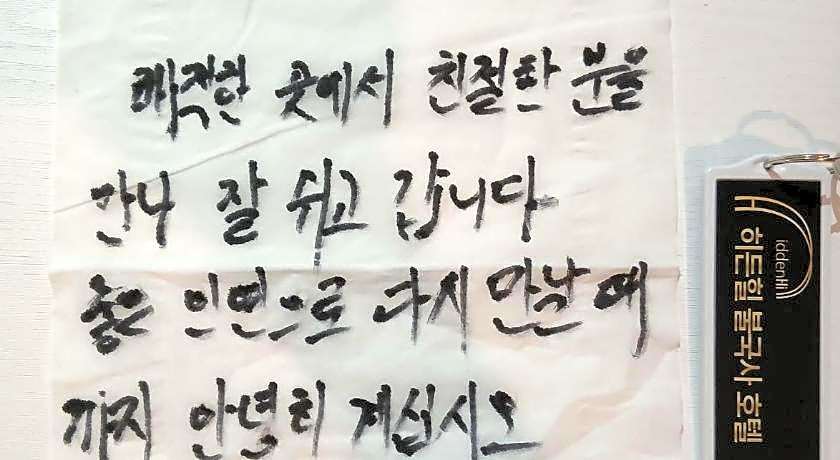 쾌적한 곳에서 친절한 분을
만나 잘 쉬고 갑니다
좋은 인연으로 다시 만날 때
까지 안녕히 계십시오
iddenHi
히든힐 불국사 호텔